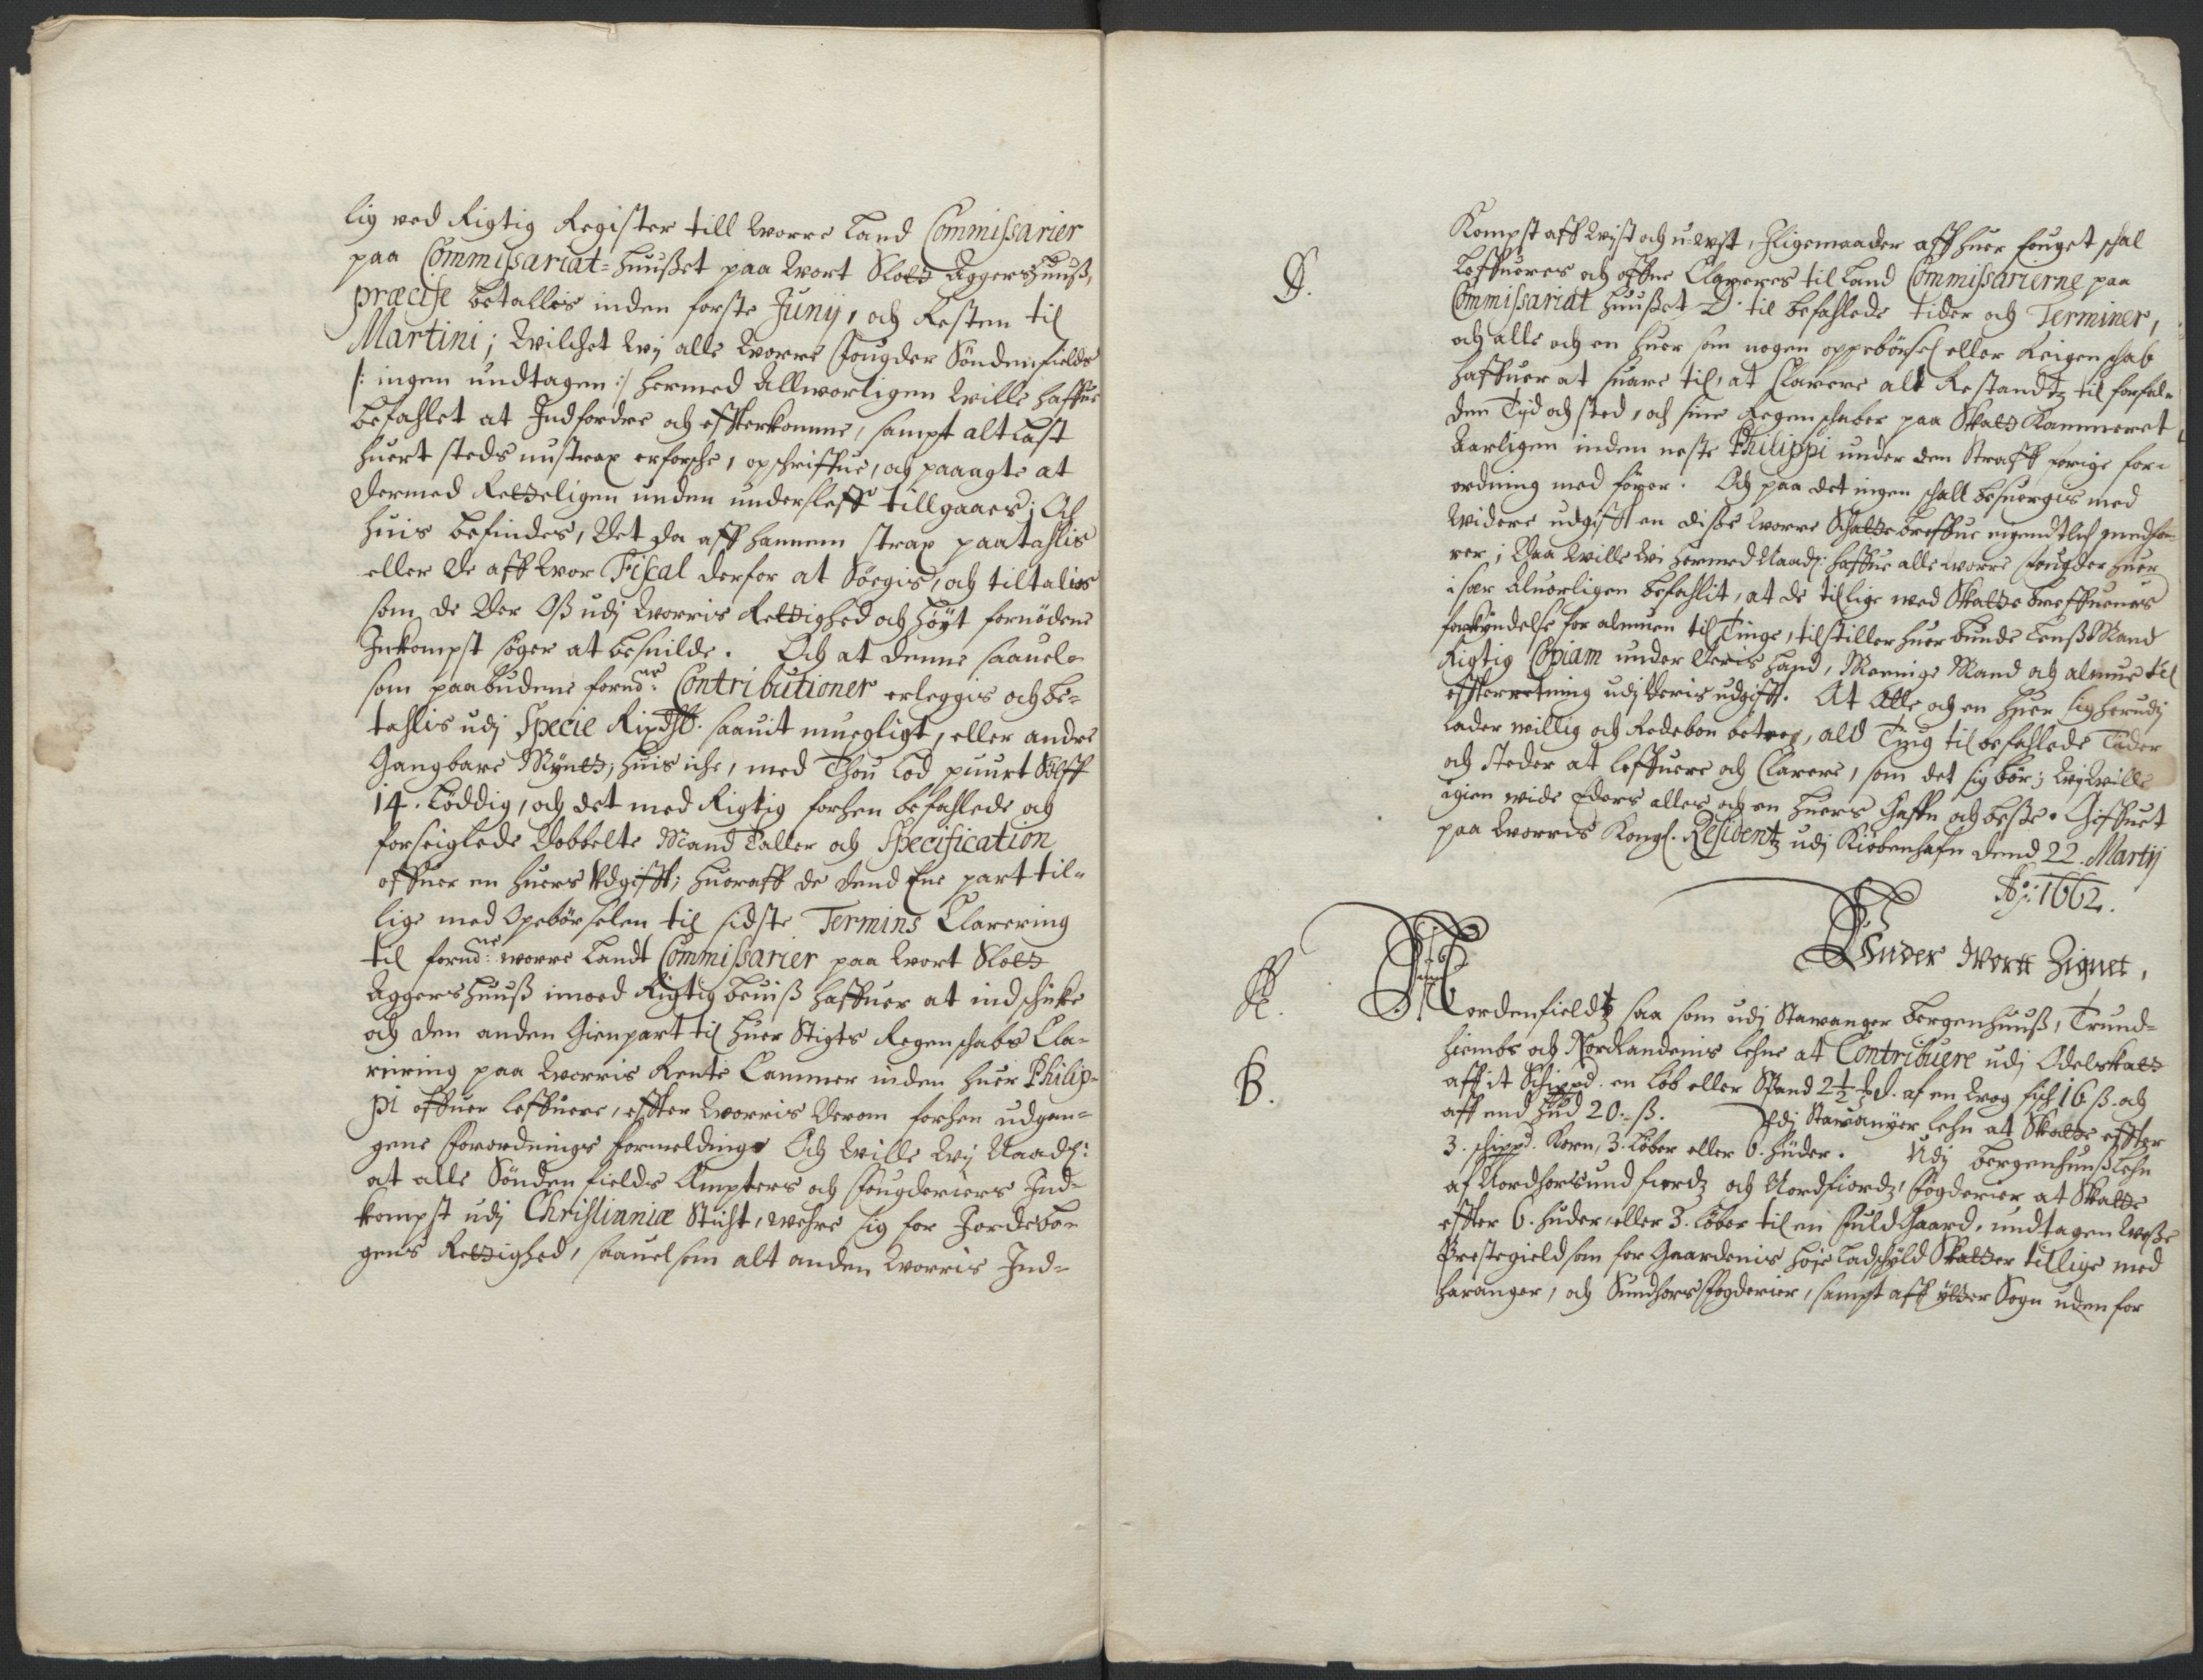 lig ved Rigtig Register till Worre Land Commissarier
paa Commissariat=Huußet paa Wort Slott Aggershuuß,
præcise betallis inden forste Junij, och Resten til
Martini; Wilchet Wij alle Worre Fougder Söndenfields
/: ingen undtagen :/ hermed Allworligen Wille haffue
befahlet at Indfordre och effterkomme, sampt alt Løst
huert steds nu strax erforsche, opschriffue, och paaagte at
dermed Retteligen unden undersleff tillgaaes; Och
huis befindes, Det da aff hannem strax paatahlis
eller De aff Wor Fiscal derfor at Söegis, och tiltalis
som de Der Oß udj Worris Rettighed och Höyt fornödene
Inkompst söger at besuilde. Och at denne saauel=
som paabudene fornd:ne Contributioner erleggis och be=
tahlis udj Specie Rixdlr. saauit muegligt, eller andre
Gangbare Myntz, huis iche, med Thou Lod puurt Sölff
14. Löddig, och det med Rigtig forhen befahlede och
forseiglede Dobbelte Mand Taller och Specification
offuer en huers Udgifft; huoraff de dend Ene part til=
lige med Opebörselen til sidste Termins Clarering
til fornd:ne worre Landt Commissarier paa Wort Slott
Aggershuuß imod Rigtig beuiß haffuer at indschicke
och den anden Gienpart til huer Stigts Regenschabs Cla=
rering paa Worris Rente Cammer inden huer Philip=
pi offuer leffuere, effter Worris Derom forhen udgan=
gene Forordnings formelding. Och Wille Wij Naadh:
at alle Sönden fields Ampters och Fougderiers Ind=
kompst udj Christianniæ Sticht, wehre sig for Jordebo=
gens Rettighed, saauelsom alt anden Worris Ind=
D.
Kompst aff Wist och u-wist, Iligemaader aff huer fouget schal
leffueres och offuer Clareres til Land Commissarierne paa
Commissariat Huußet D. til befahlede tider och Terminer,
och alle och en huer som nogen oppebörsel eller Reigenschab
haffuer at suare til, at Clarere alt Restandtz til forfal=
den Tijd och sted, och sine Regenschaber paa Skatt Kammeret
Aarligen inden neste Philippi under den Straff forige for=
ordning med förer. Och paa det ingen schall besuergis med
Widere udgifft en disse Worre Schatte breffue eigendtlich medfö=
rer; Daa Wille Wi hermed Naadh: haffue alle worre Fougder huer
i sær Aluorligen befahlit, at de tillige med Skatte breffuenes
forkyndelse for almuen til Tinge, tilstiller huer bunde Lenßmand
Rigtig Copiam under Deris Hand, Menige Mand och almue til
effterretning udj Deris udgifft. At Alle och en huer sig herudj
lader willig och Redebon betree, ald Ting til befahlede Tider
och steder at leffuere och Clarere, som det sig bör; Wij Wille
igien wide Eders alles och en huers Gaffn och beste. Giffuet
paa Worris Kongl. Residentz udj Kiöbenhafn dend 22. Martij
Ao: 1662.
Under Wortt Zignet,
A.
Nordenfieldtz saa som udj Stawanger Bergenhuuß, Trund=
hiembs och Nordlandenis Lehne at Contribuere udj Odelskatt
B.
aff it Schippd. en Løb eller Spand 2½ d. af en Wog fisch 16 ß. och
aff end hud 20. ß. Udj Stawanger Lehn at Skatte effter
3. schippd. Korn, 3. Løber eller 6. huder. Udj bergenhuuß lehn
af Nordhorsund fiordz och Nordfiordz, Fogderier at Skatte
effter 6. huder, eller 3. Løber til en fuld Gaard, undtagen Woße
Prestegield som for Gaardenis höye Ladschyld Skatter tillige med
Haranger, och Sundhors Fogderier, sampt aff ytter Sogn uden for